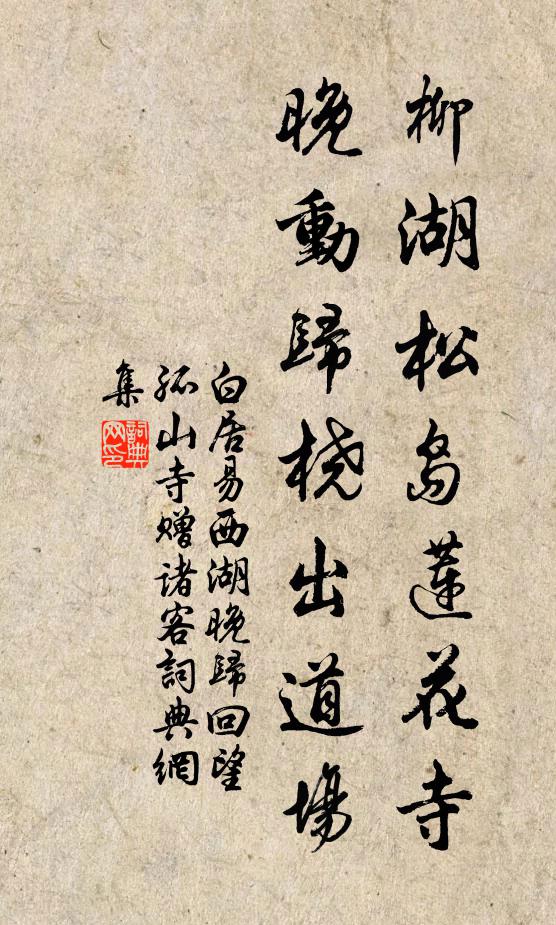 柳湖松島蓮花寺
晚動歸橈出道場
白居易西湖晚歸回望
孤山寺贈諸客詞典網
集
詞典
网印